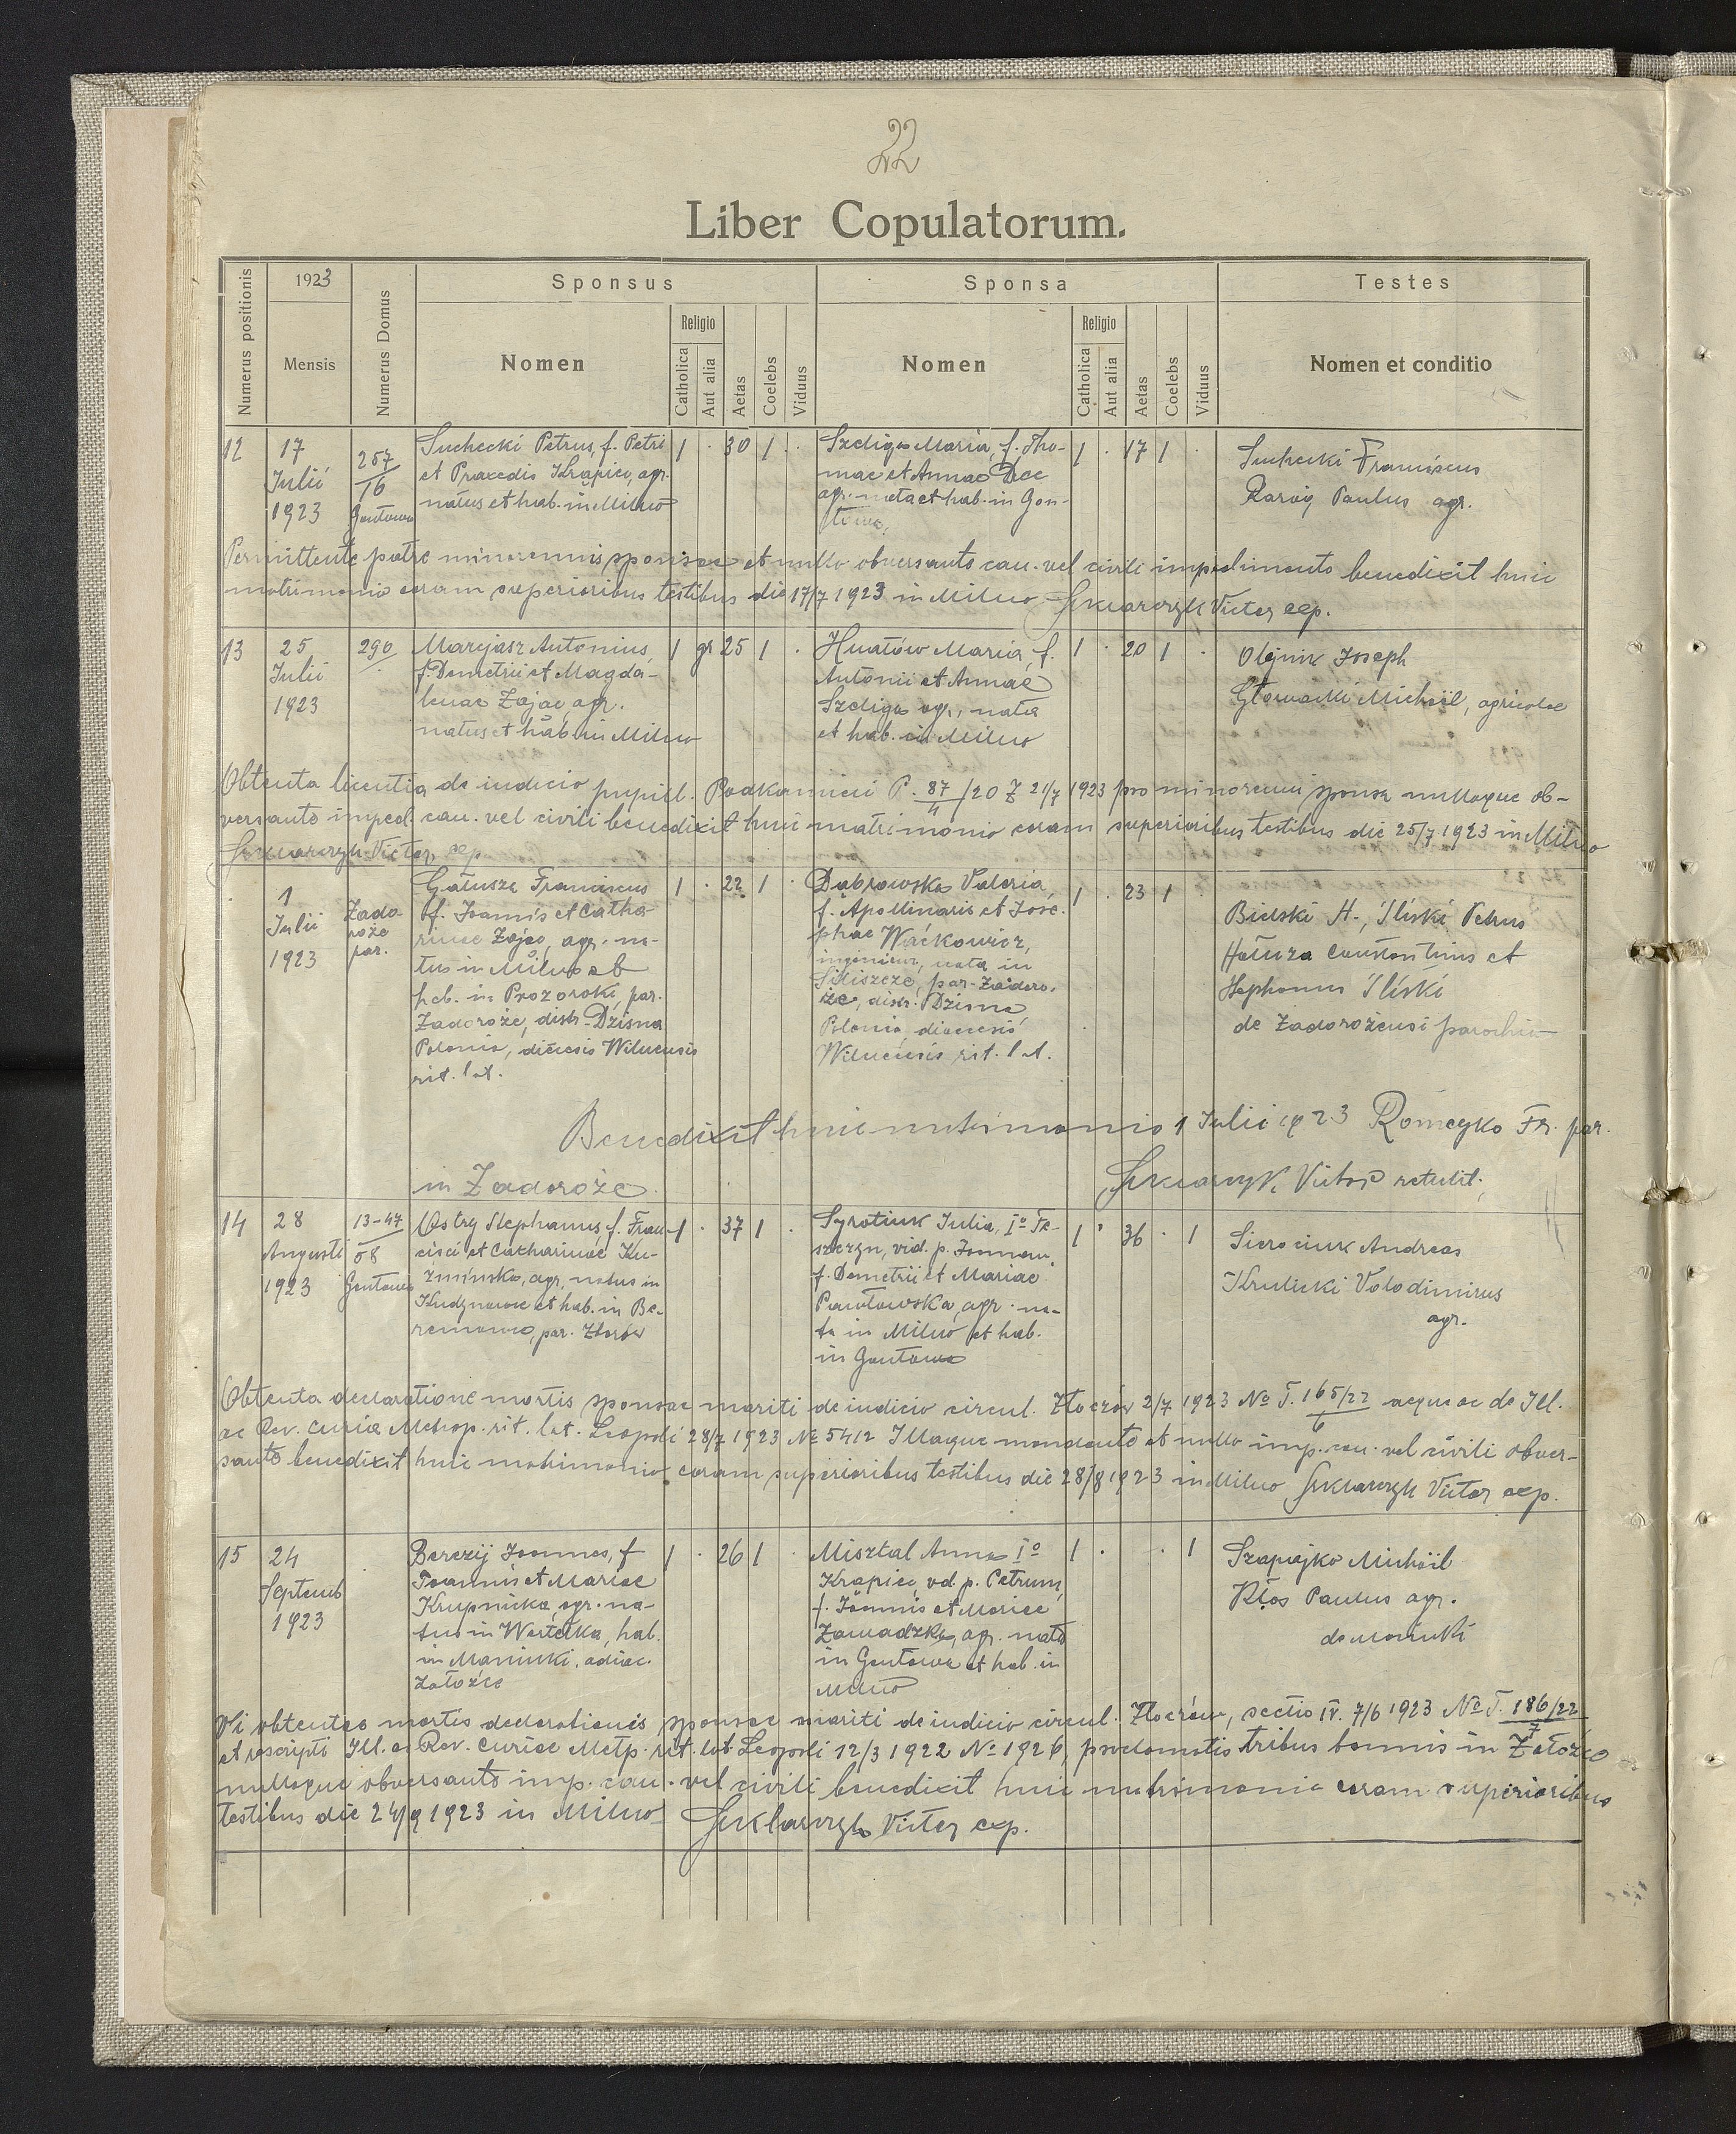 22
Liber Copulatorum.
Numerus positionis
1923
Mensis
Numerus Domus
Sponsus
Nomen
Religio
Catholica
Aut alia
Aetas
Coelebs
Viduus
Sponsa
Nomen
Religio
Catholica
Aut alia
Aetas
Coelebs
Viduus
Testes
Nomen et conditio
12
17
Julii
1923
257
16
Gontowa
Suchecki Petrus, f. Petri
et Praxedis Krąpiec, agr.
natus et hab. in Milno
1 . 30 1 .
Szeliga Maria, f. Tho-
mae et Annae Dec
agr. nata et hab. in Gon-
towa,
1 . 17 1 .
Suchecki Franciscus
Paulus agr.
Permittente patre minorennis sponsae et nullo obversante can. vel civili impedimento benedixit huic
matrimonio coram superioribus testibus die 17/7 1923 in Milno Szklarczyk Victor exp.
13
25
Julii
1923
290
Marcjasz Antonius,
f. Demetrii et Magda-
lenae Zając, agr.
natus et hab. in Milno
1 gr 25 1 .
Hnatów Maria, f.
Antonii et Annae
Szeliga agr., nata
et hab. in Milno
1 . 20 1 .
Olejnik Joseph
Głowacki Michaël, agricolae
Obtenta licentia de iudicio pupill. Podkamień P. 87/4/20 Z 21/7 1923 pro minorenni sponsa nulloque ob-
versante imped. can. vel civili benedixit huic matrimonio coram superioribus testibus die 25/7 1923 in Milno
Szklarczyk Victor exp
1
Julii
1923
Zado-
roże
par.
Gałusza Franciscus
f. Joannis et Catha-
rinae Zając, agr. na-
tus in Milno et
hab. in Prozoroki, par.
Zadoroże, distr. Dzisna
Polonia, diecesis Wilnensis
rit. lat.
1 . 22 1 .
Dąbrowska Valeria,
f. Apollinaris et Jose-
phae Waćkowicz,
nata in
par. Zadoro-
że, distr. Dzisna
Polonia, diecesis
Wilnensis rit. lat.
1 . 23 1 .
Bielski A., Iliski Petrus
Constantinus et
Stephanus Iliski
de Zadorożensi parochia
Benedixit huic matrimonio 1 Julii 1923 Romeyko Fr. par.
in Zadoroże.
Szklarczyk Victor retulit.
14
28
Augusti
1923
13-47
58
Gontowa
Ostry Stephanus, f. Fran-
cisci et Catharinae Ku-
źmińska, agr, natus in
Kudynowce et hab. in Be-
remowce, par. Zborów
1 . 37 1 .
Syrotiuk Julia, Iº Fe-
vid. p. Joannem
f. Demetrii et Mariae
Pawłowska, agr. na-
ta in Milno et hab.
in Gontowa
1 . 36 . 1
Sierociuk Andreas
Krulicki Volodimirus
agr.
Obtenta declaratione mortis sponsae mariti de iudicio circul. Złoczów 2/7 1923 No T. 165/22/6 aeque ac de Ill.
ac Rev. Curia Metrop. rit. lat. Leopoli 28/7 1923 No 5412 Illaque mandante et nullo imp. can. vel civili obver-
sante benedixit huic matrimonio coram superioribus testibus die 28/8 1923 in Milno Szklarczyk Victor exp.
15
24
Septemb
1923
Berezij Joannes, f
Joannis et Mariae
Krupnicka, agr. na-
tus in Wertełka, hab.
in Maniuki, adiac.
Załoźce
1 . 26 1 .
Misztal Anna Iº
Krąpiec, vd. p. Petrum,
f. Joannis et Mariae
Zawadzka, agr. nata
in Gontowa et hab. in
Milno
1 . . 1
Szapajko Michaël
Kłos Paulus agr.
de Maniuki
Vi obtentae mortis declarationis sponsae mariti de iudicio circul. Złoczów, sectio IV. 7/6 1923 No T. 186/22/7
et rescripti Ill. ac Rev. Curiae Metp. rit. lat. Leopoli 12/3 1922 No 1926, proclamatis tribus bannis in Załoźce
nulloque obversante imp. can. vel civili benedixit huic matrimonio coram superioribus
testibus die 24/9 1923 in Milno Szklarczyk Victor exp.